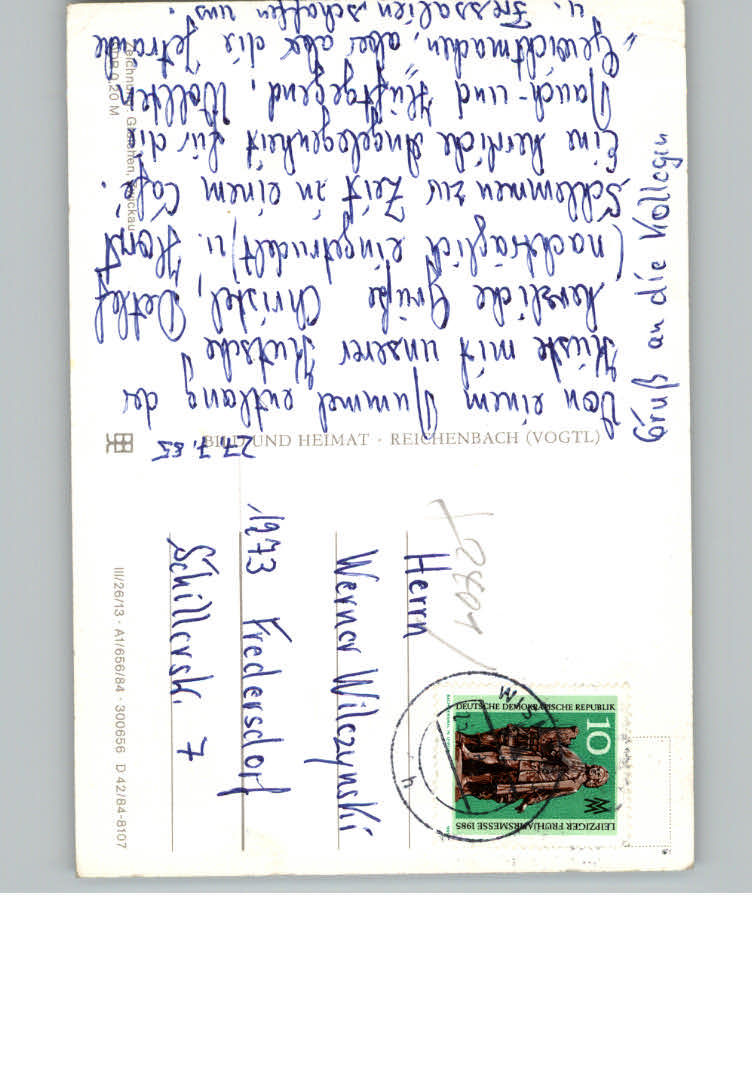 27.7.85
Von einem Bummel entlang der
Küste mit unserer "Kutsche"
herzliche Grüße Christel, Detlef
(nachträglich eingetrudelt) u. Horst
Schlemmen zur Zeit in einem Café.
Eine herrliche Angelegenheit für die
Bauch- und Hüftgegend. Wollten
"Gewichtmachen, aber aber die Getränke
u. Fressalien schaffen uns.
Gruß an die Kollegin
BILD UND HEIMAT · REICHENBACH (VOGTL)
Herrn
Werner Wilczynski
1273 Fredersdorf
Schillerstr. 7
DEUTSCHE DEMOKRATISCHE REPUBLIK
10
LEIPZIGER FRÜHJAHRSMESSE 1985
III/26/13 · A1/656/84 · 300656 D 42/84-8107